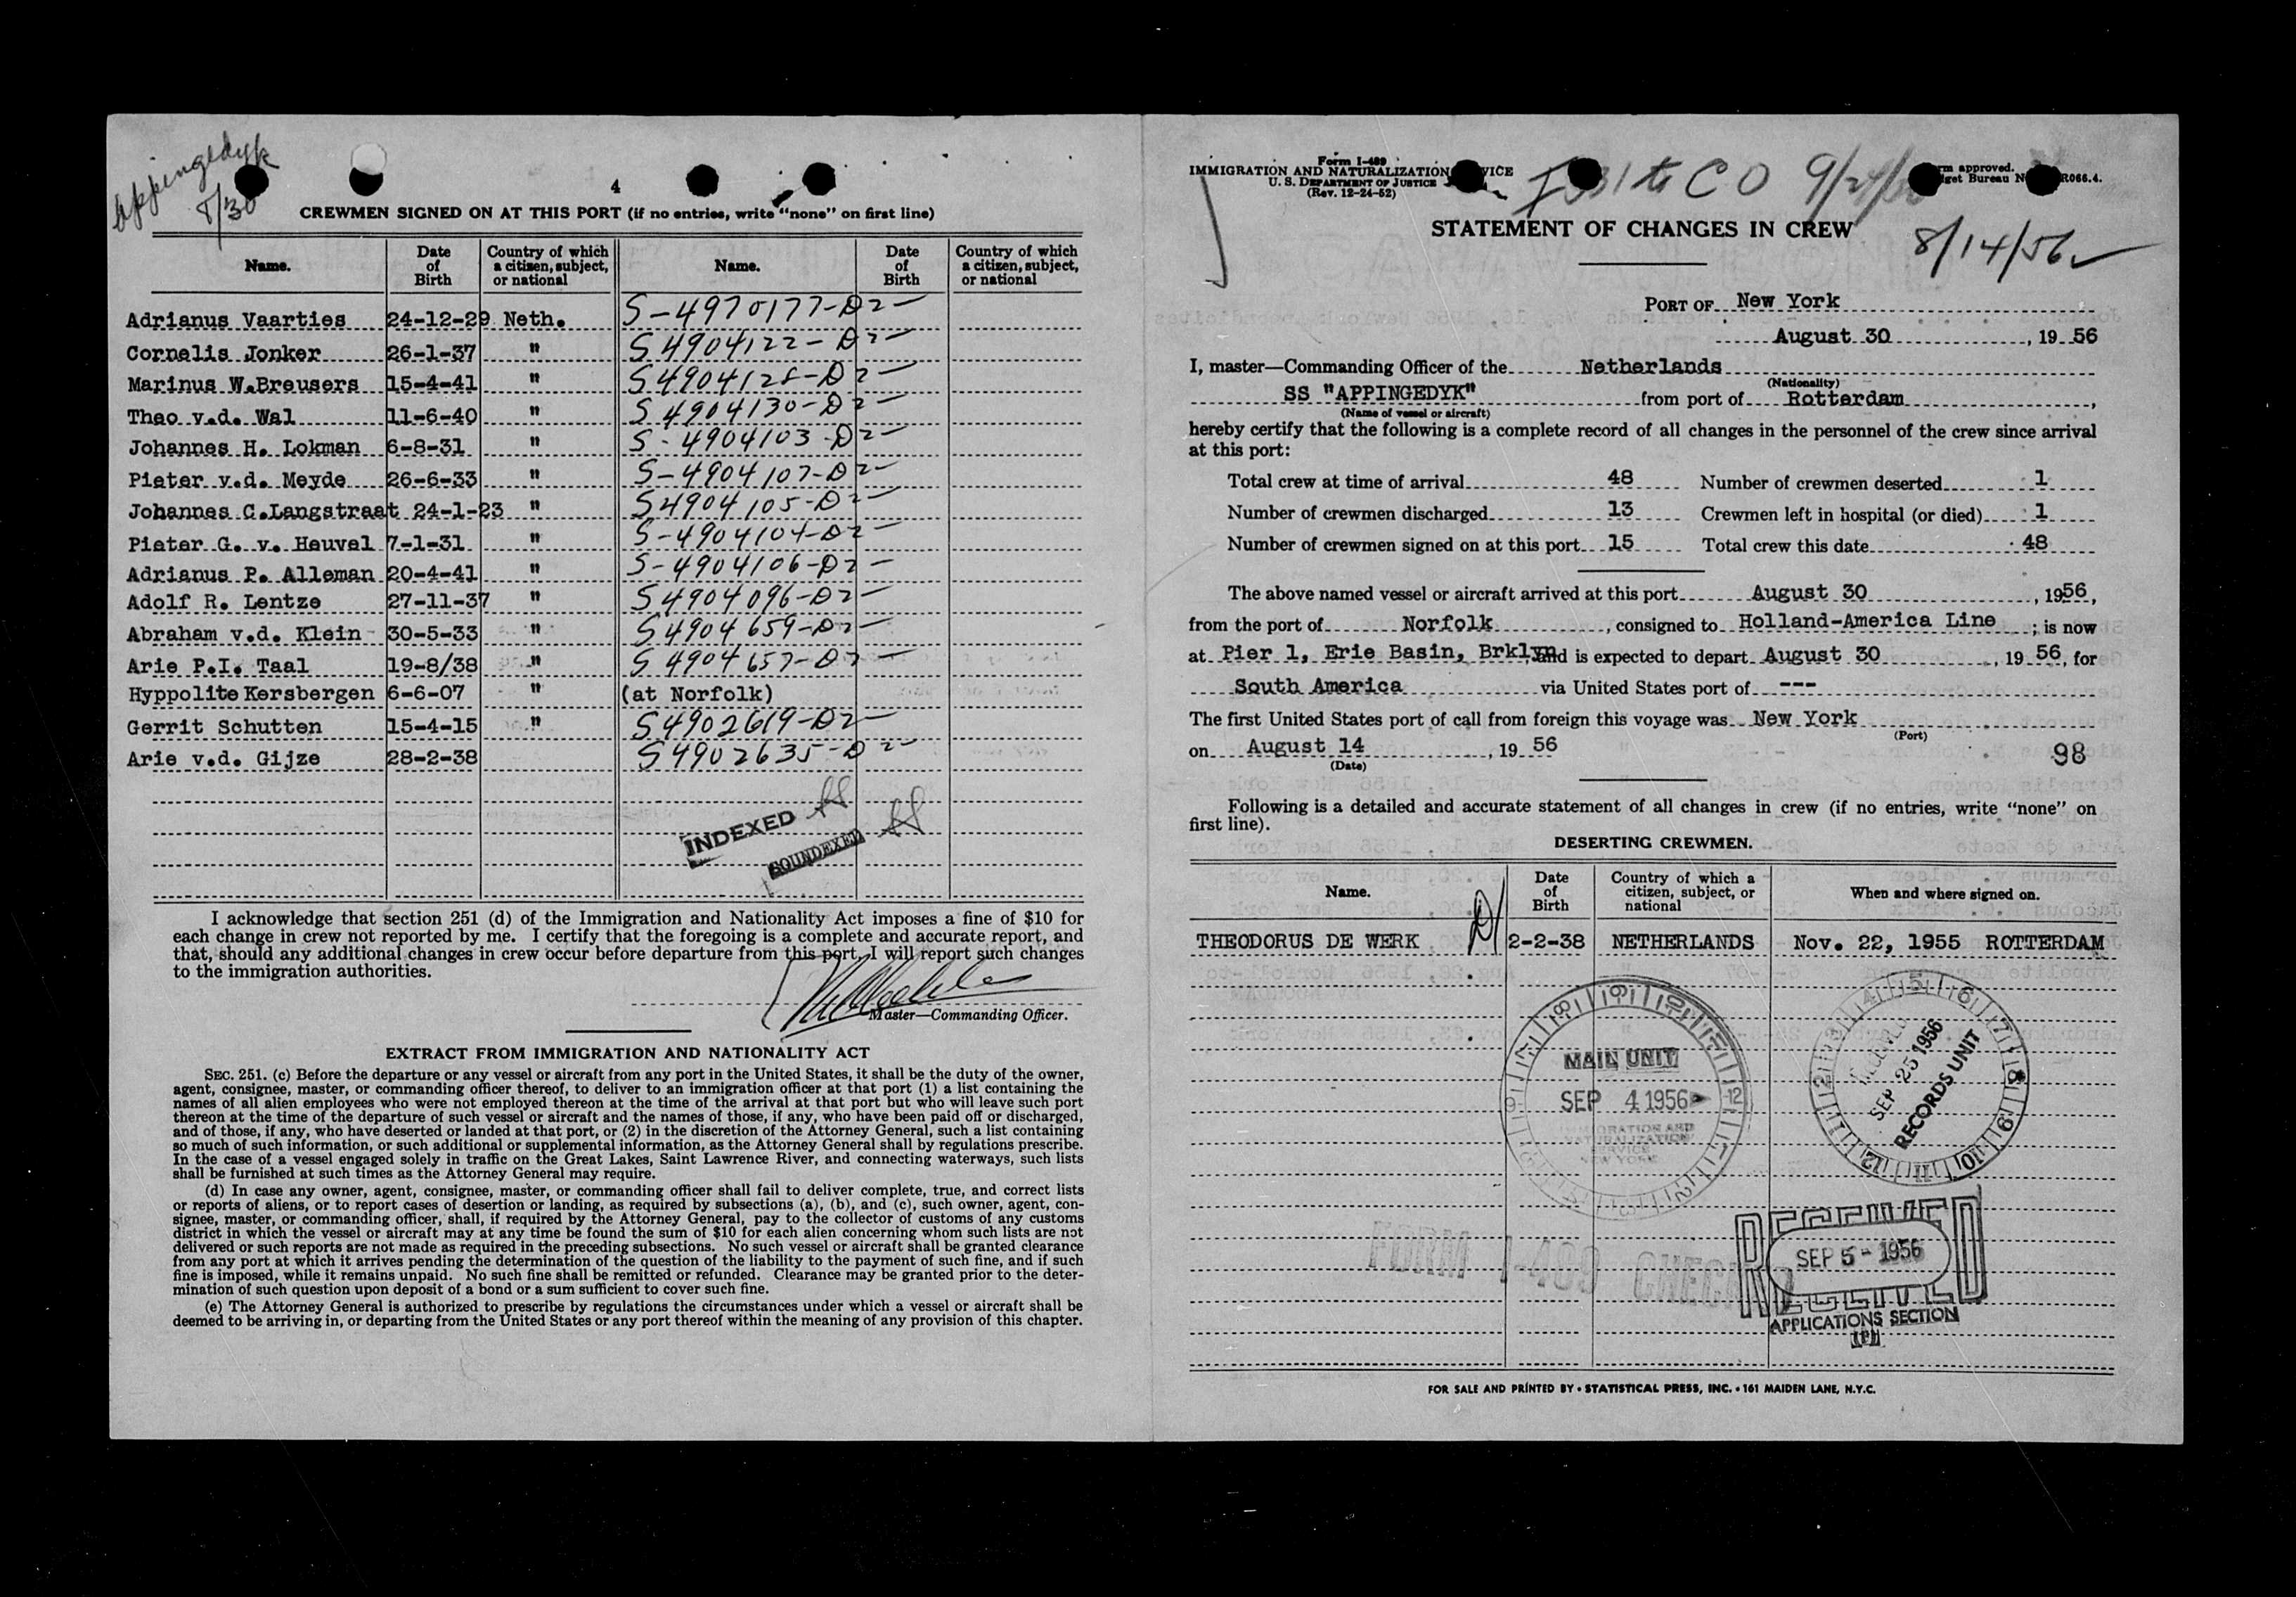 Appingedyk
8/30
4
CREWMEN SIGNED ON AT THIS PORT (if no entries, write “none” on first line)
Name. Date of Birth Country of which a citizen, subject, or national Name. Date of Birth Country of which a citizen, subject, or national
Adrianus Vaarties 24-12-29 Neth. S-4970177-D2-
Cornelis Jonker 26-1-37 " S4904122-D2-
Marinus W.Breusers 15-4-41 " S4904128-D2-
Theo v.d. Wal 11-6-40 " S4904130-D2-
Johannes H. Lokman 6-8-31 " S-4904103-D2-
Pieter v.d. Meyde 26-6-33 " S-4904107-D2-
Johannes C.Langstraat 24-1-23 " S4904105-D2-
Pieter G. v. Heuvel 7-1-31 " S-4904104-D2-
Adrianus P. Alleman 20-4-41 " S-4904106-D2-
Adolf R. Lentze 27-11-37 " S4904096-D2-
Abraham v.d. Klein 30-5-33 " S4904659-D2-
Arie P.I. Taal 19-8/38 " S4904657-D2-
Hyppolite Kersbergen 6-6-07 " (at Norfolk)
Gerrit Schutten 15-4-15 " S4902619-D2-
Arie v.d. Gijze 28-2-38 S4902635-D2-
INDEXED
SOUNDEXED
I acknowledge that section 251 (d) of the Immigration and Nationality Act imposes a fine of $10 for
each change in crew not reported by me. I certify that the foregoing is a complete and accurate report, and
that, should any additional changes in crew occur before departure from this port, I will report such changes
to the immigration authorities.
Master—Commanding Officer.
EXTRACT FROM IMMIGRATION AND NATIONALITY ACT
SEC. 251. (c) Before the departure or any vessel or aircraft from any port in the United States, it shall be the duty of the owner,
agent, consignee, master, or commanding officer thereof, to deliver to an immigration officer at that port (1) a list containing the
names of all alien employees who were not employed thereon at the time of the arrival at that port but who will leave such port
thereon at the time of the departure of such vessel or aircraft and the names of those, if any, who have been paid off or discharged,
and of those, if any, who have deserted or landed at that port, or (2) in the discretion of the Attorney General, such a list containing
so much of such information, or such additional or supplemental information, as the Attorney General shall by regulations prescribe.
In the case of a vessel engaged solely in traffic on the Great Lakes, Saint Lawrence River, and connecting waterways, such lists
shall be furnished at such times as the Attorney General may require.
(d) In case any owner, agent, consignee, master, or commanding officer shall fail to deliver complete, true, and correct lists
or reports of aliens, or to report cases of desertion or landing, as required by subsections (a), (b), and (c), such owner, agent, con-
signee, master, or commanding officer, shall, if required by the Attorney General, pay to the collector of customs of any customs
district in which the vessel or aircraft may at any time be found the sum of $10 for each alien concerning whom such lists are not
delivered or such reports are not made as required in the preceding subsections. No such vessel or aircraft shall be granted clearance
from any port at which it arrives pending the determination of the question of the liability to the payment of such fine, and if such
fine is imposed, while it remains unpaid. No such fine shall be remitted or refunded. Clearance may be granted prior to the deter-
mination of such question upon deposit of a bond or a sum sufficient to cover such fine.
(e) The Attorney General is authorized to prescribe by regulations the circumstances under which a vessel or aircraft shall be
deemed to be arriving in, or departing from the United States or any port thereof within the meaning of any provision of this chapter.
Form I-489
IMMIGRATION AND NATURALIZATION
U. S. DEPARTMENT OF JUSTICE
(Rev. 12-24-52)
approved.
Bureau R066.4.
to CO
STATEMENT OF CHANGES IN CREW
8/14/56
PORT OF New York
August 30, 19 56
I, master—Commanding Officer of the Netherlands
(Nationality)
SS "APPINGEDYK" from port of Rotterdam,
(Name of vessel or aircraft)
hereby certify that the following is a complete record of all changes in the personnel of the crew since arrival
at this port:
Total crew at time of arrival 48 Number of crewmen deserted 1
Number of crewmen discharged 13 Crewmen left in hospital (or died) 1
Number of crewmen signed on at this port 15 Total crew this date 48
The above named vessel or aircraft arrived at this port August 30, 1956,
from the port of Norfolk, consigned to Holland-America Line; is now
at Pier 1, Erie Basin, Brklyn and is expected to depart August 30, 19 56, for
South America via United States port of ---
The first United States port of call from foreign this voyage was New York
(Port)
on August 14, 19 56
(Date)
98
Following is a detailed and accurate statement of all changes in crew (if no entries, write “none” on
first line).
DESERTING CREWMEN.
Name. Date of Birth Country of which a citizen, subject, or national When and where signed on.
THEODORUS DE WERK 2-2-38 NETHERLANDS Nov. 22, 1955 ROTTERDAM
MAIN UNIT
SEP 4 1956
IMMIGRATION AND
NATURALIZATION
SERVICE
NEW YORK
RECEIVED
SEP 25 1956
RECORDS UNIT
FORM I-489 CHECKED
RECEIVED
SEP 5 - 1956
APPLICATIONS SECTION
(P)
FOR SALE AND PRINTED BY • STATISTICAL PRESS, INC. • 161 MAIDEN LANE, N.Y.C.